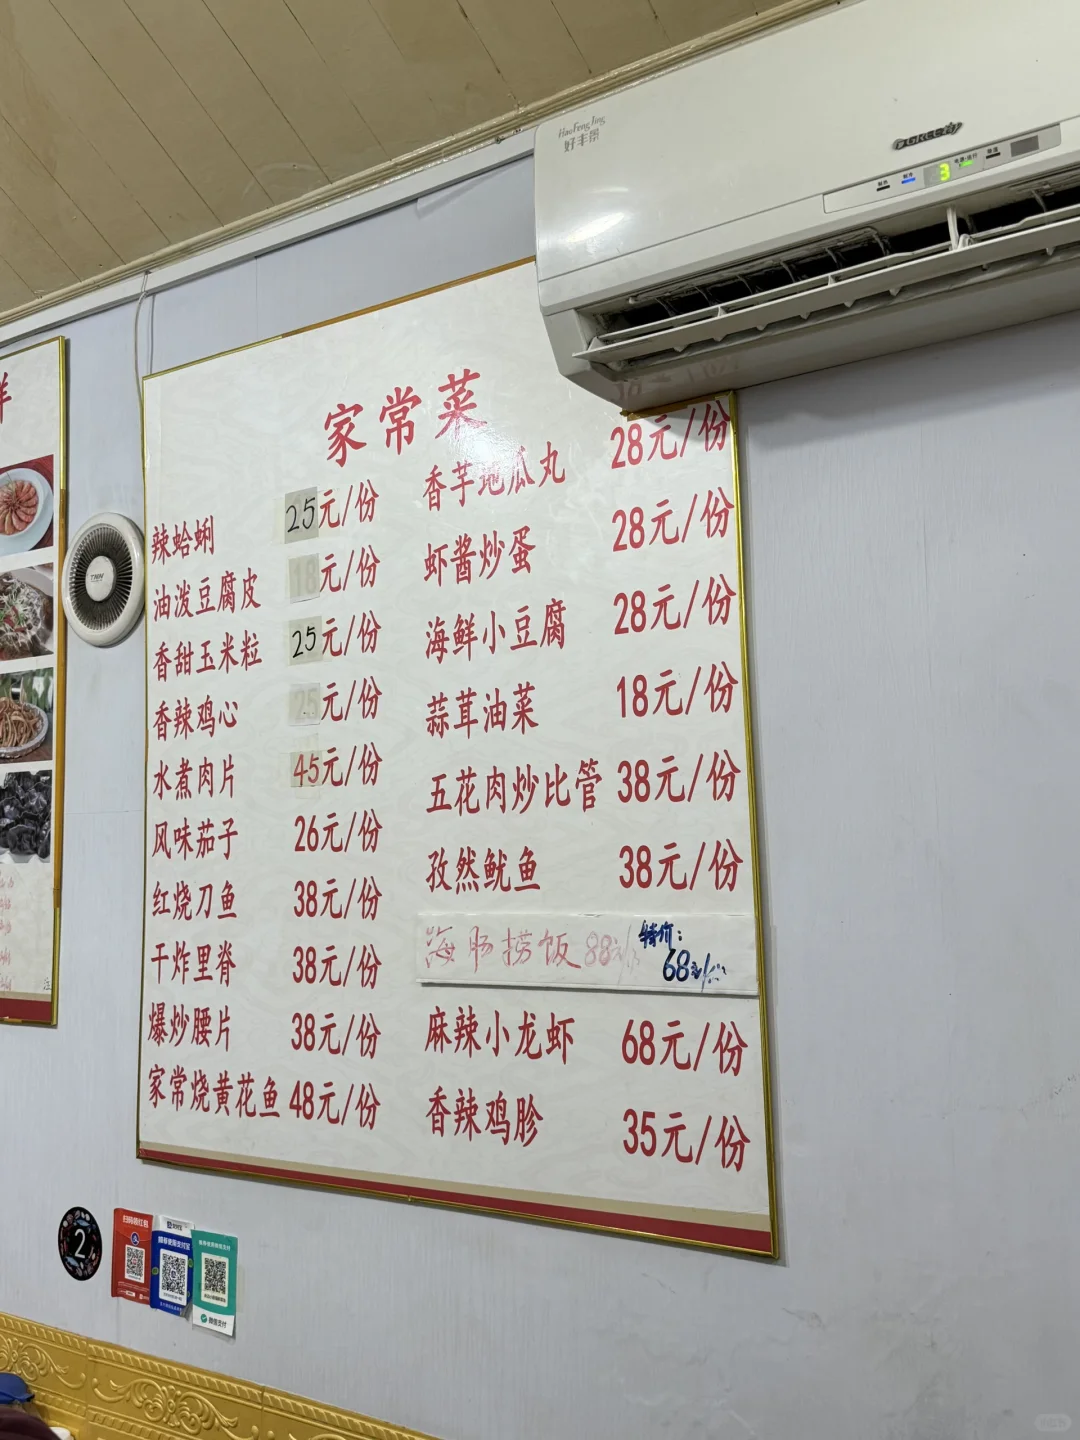 HaoFengJing
好丰景
GREE
3
家常菜
辣蛤蜊 25元/份
油泼豆腐皮 18元/份
香甜玉米粒 25元/份
香辣鸡心 25元/份
水煮肉片 45元/份
风味茄子 26元/份
红烧刀鱼 38元/份
干炸里脊 38元/份
爆炒腰片 38元/份
家常烧黄花鱼 48元/份
香芋地瓜丸 28元/份
虾酱炒蛋 28元/份
海鲜小豆腐 28元/份
蒜茸油菜 18元/份
五花肉炒比管 38元/份
孜然鱿鱼 38元/份
海肠捞饭 88元/份 特价:
68元/份
麻辣小龙虾 68元/份
香辣鸡胗 35元/份
2
扫码领红包
支付宝
推荐使用支付宝
推荐使用微信支付
微信支付